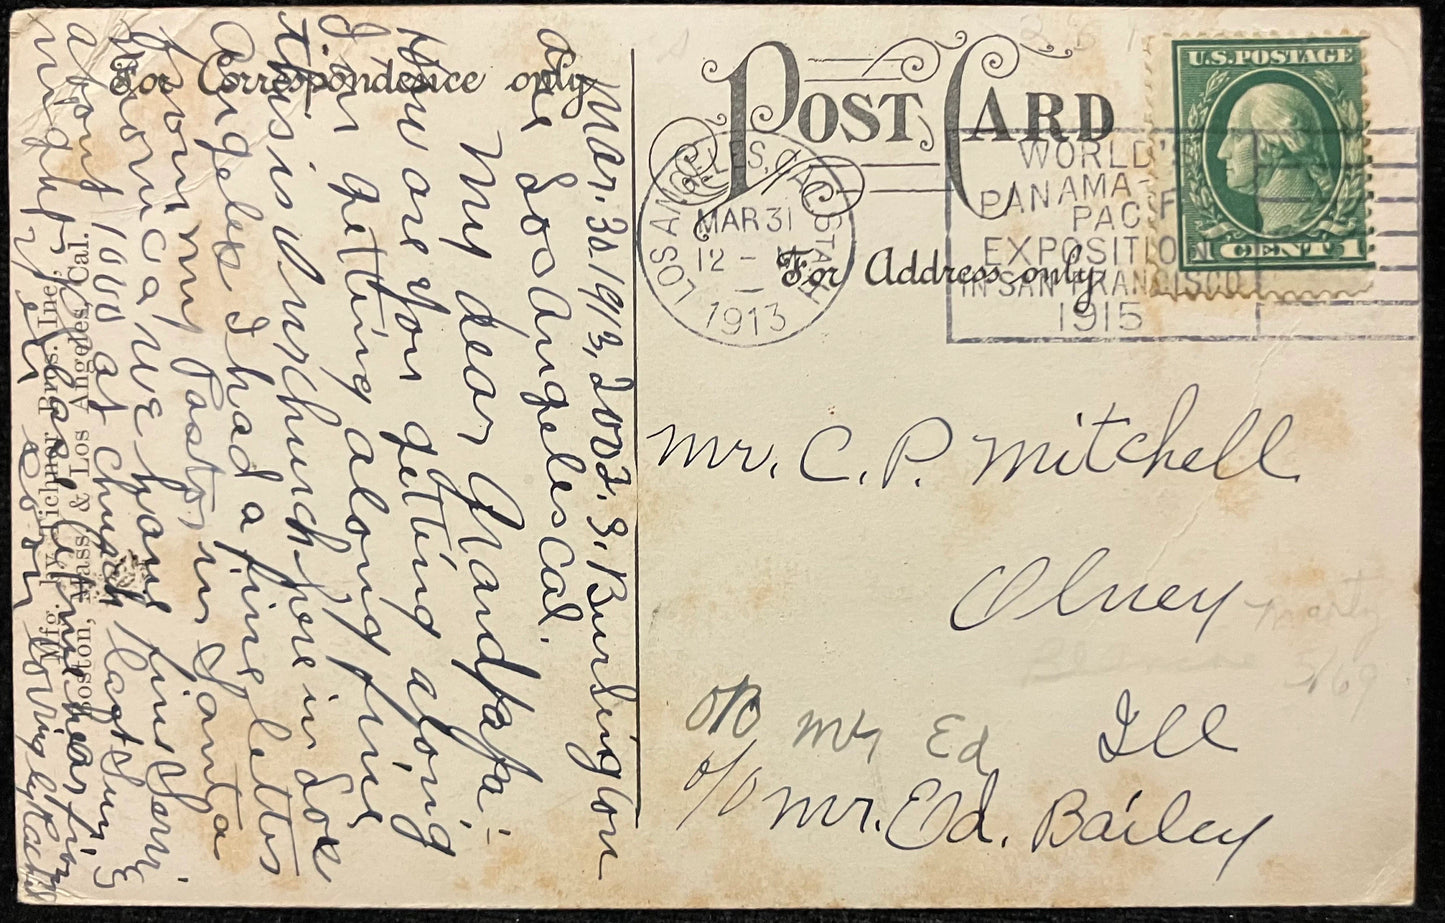 For Correspondence only
POST CARD
For Address only
U.S. POSTAGE
1 CENT 1
LOS ANGELES, CAL. STA.
MAR 31
12 - M
1913
WORLD'S
PANAMA-
PACIF
EXPOSITION
IN SAN FRANCISCO
1915
Mr. C. P. Mitchell
Olney
Ill
Mr Ed
c/o Mr. Ed. Bailey
Mar. 30, 1913, 2002. S. Burlington
ave Los Angeles Cal.
My dear Grandpapa:-
How are you getting along
I'm getting along fine
this is my church here in Los
Angeles I had a fine letter
from my Pastor in Santa
Monica we have fine Serv.
about 1000 at church last Sun
night
Mfg. by Tichnor Bros. Inc.,
Boston, Mass. & Los Angeles, Cal.